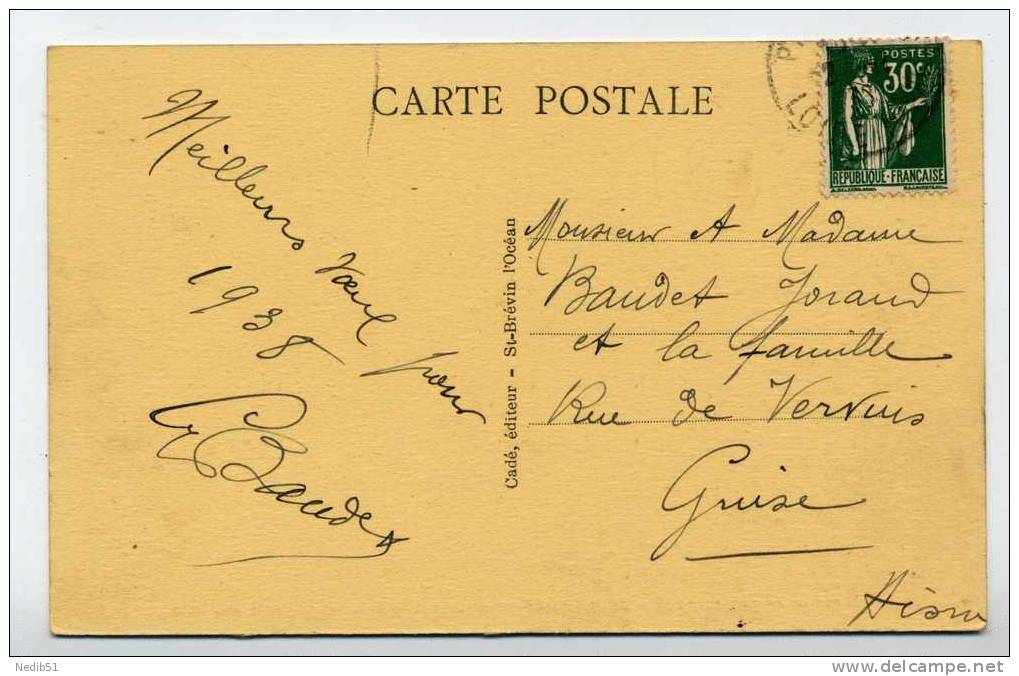 CARTE POSTALE
POSTES
30c
REPUBLIQUE-FRANÇAISE
Meilleurs vœux pour
1938
Baudet
Cadé, éditeur - St-Brévin l'Océan
Monsieur et Madame
Baudet Joraud
et la famille
Rue de Vervins
Guise
Aisne
Nedib51
www.delcampe.net